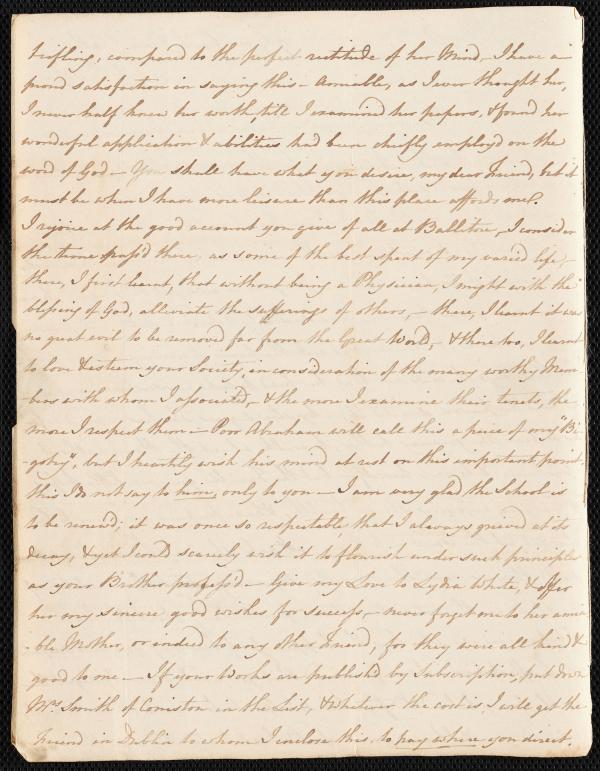 trifling, compared to the perfect rectitude of her Mind, – I have a
proud satisfaction in saying this – Amiable, as I ever thought her,
I never half knew her worth till I examined her papers, & found her
wonderful application & abilities had been chiefly employd on the
word of God – You shall have what you desire, my dear Friend, but it
must be when I have more leisure than this place affords me.
I rejoice at the good account you give of all at Ballitore, – I consider
the time pass'd there, as some of the best spent of my varied life, –
there, I first learnt, that without being a Physician, I might with the
blessing of God, alleviate the sufferings of others, – there, I learnt it was
no great evil to be removed far from the Great World, – & there too, I learnt
to love & esteem your Society, in consideration of the many worthy Mem
-bers with whom I associated, – & the more I examine their tenets, the
more I respect them – Poor Abraham will call this a piece of my "Bi
-gotry", but I heartily wish his mind at rest on this important point.
this I do not say to him, only to you – I am very glad the School is
to be renewd; it was once so respectable, that I always grieved at its
decay, & yet I could scarcely wish it to flourish under such principles
as your Brother profess'd – Give my Love to Lydia White, & offer
her my sincere good wishes for success, – never forget me to her amia
-ble Mother, or indeed to any other Friend, for they were all kind &
good to me – If your Works are publish'd by Subscription, put down
Mrs. Smith of Coniston in the List, & whatever the cost is, I will get the
Friend in Dublin to whom I enclose this, to pay where you direct.